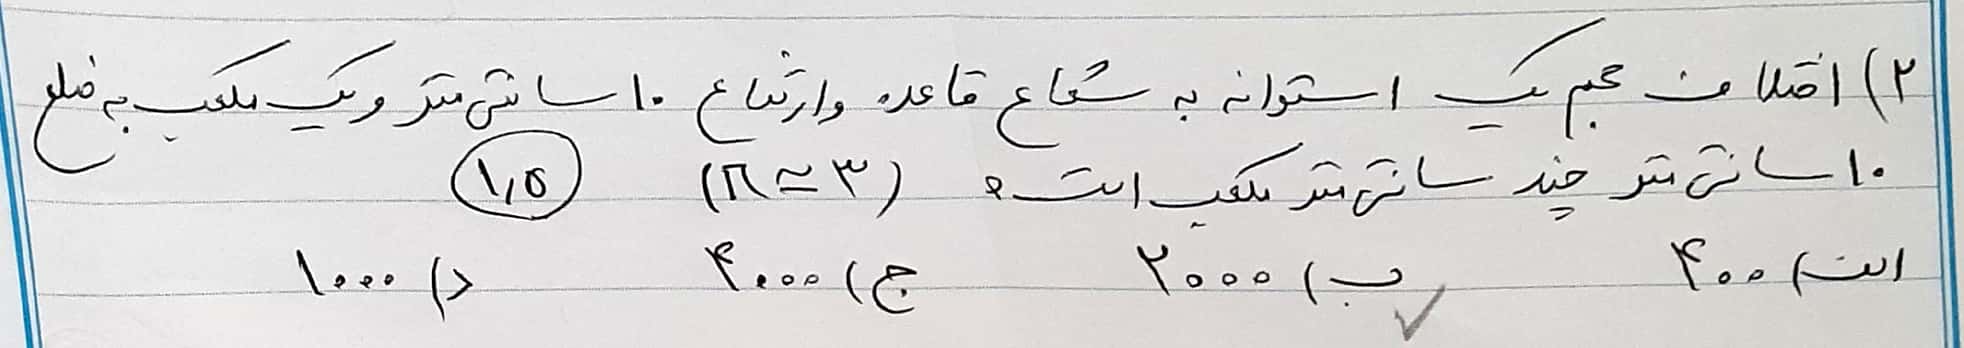 ۲) اختلاف حجم یک استوانه به شعاع قاعده وارتفاع ۱۰ سانتی متر و یک مکعب به ضلع
۱۰ سانتی متر چند سانتی متر مکعب است؟ (π ≃ ۳) ۱,۵
الف) ۴۰۰ ب) ۲۰۰۰ ج) ۴۰۰۰ د) ۱۰۰۰